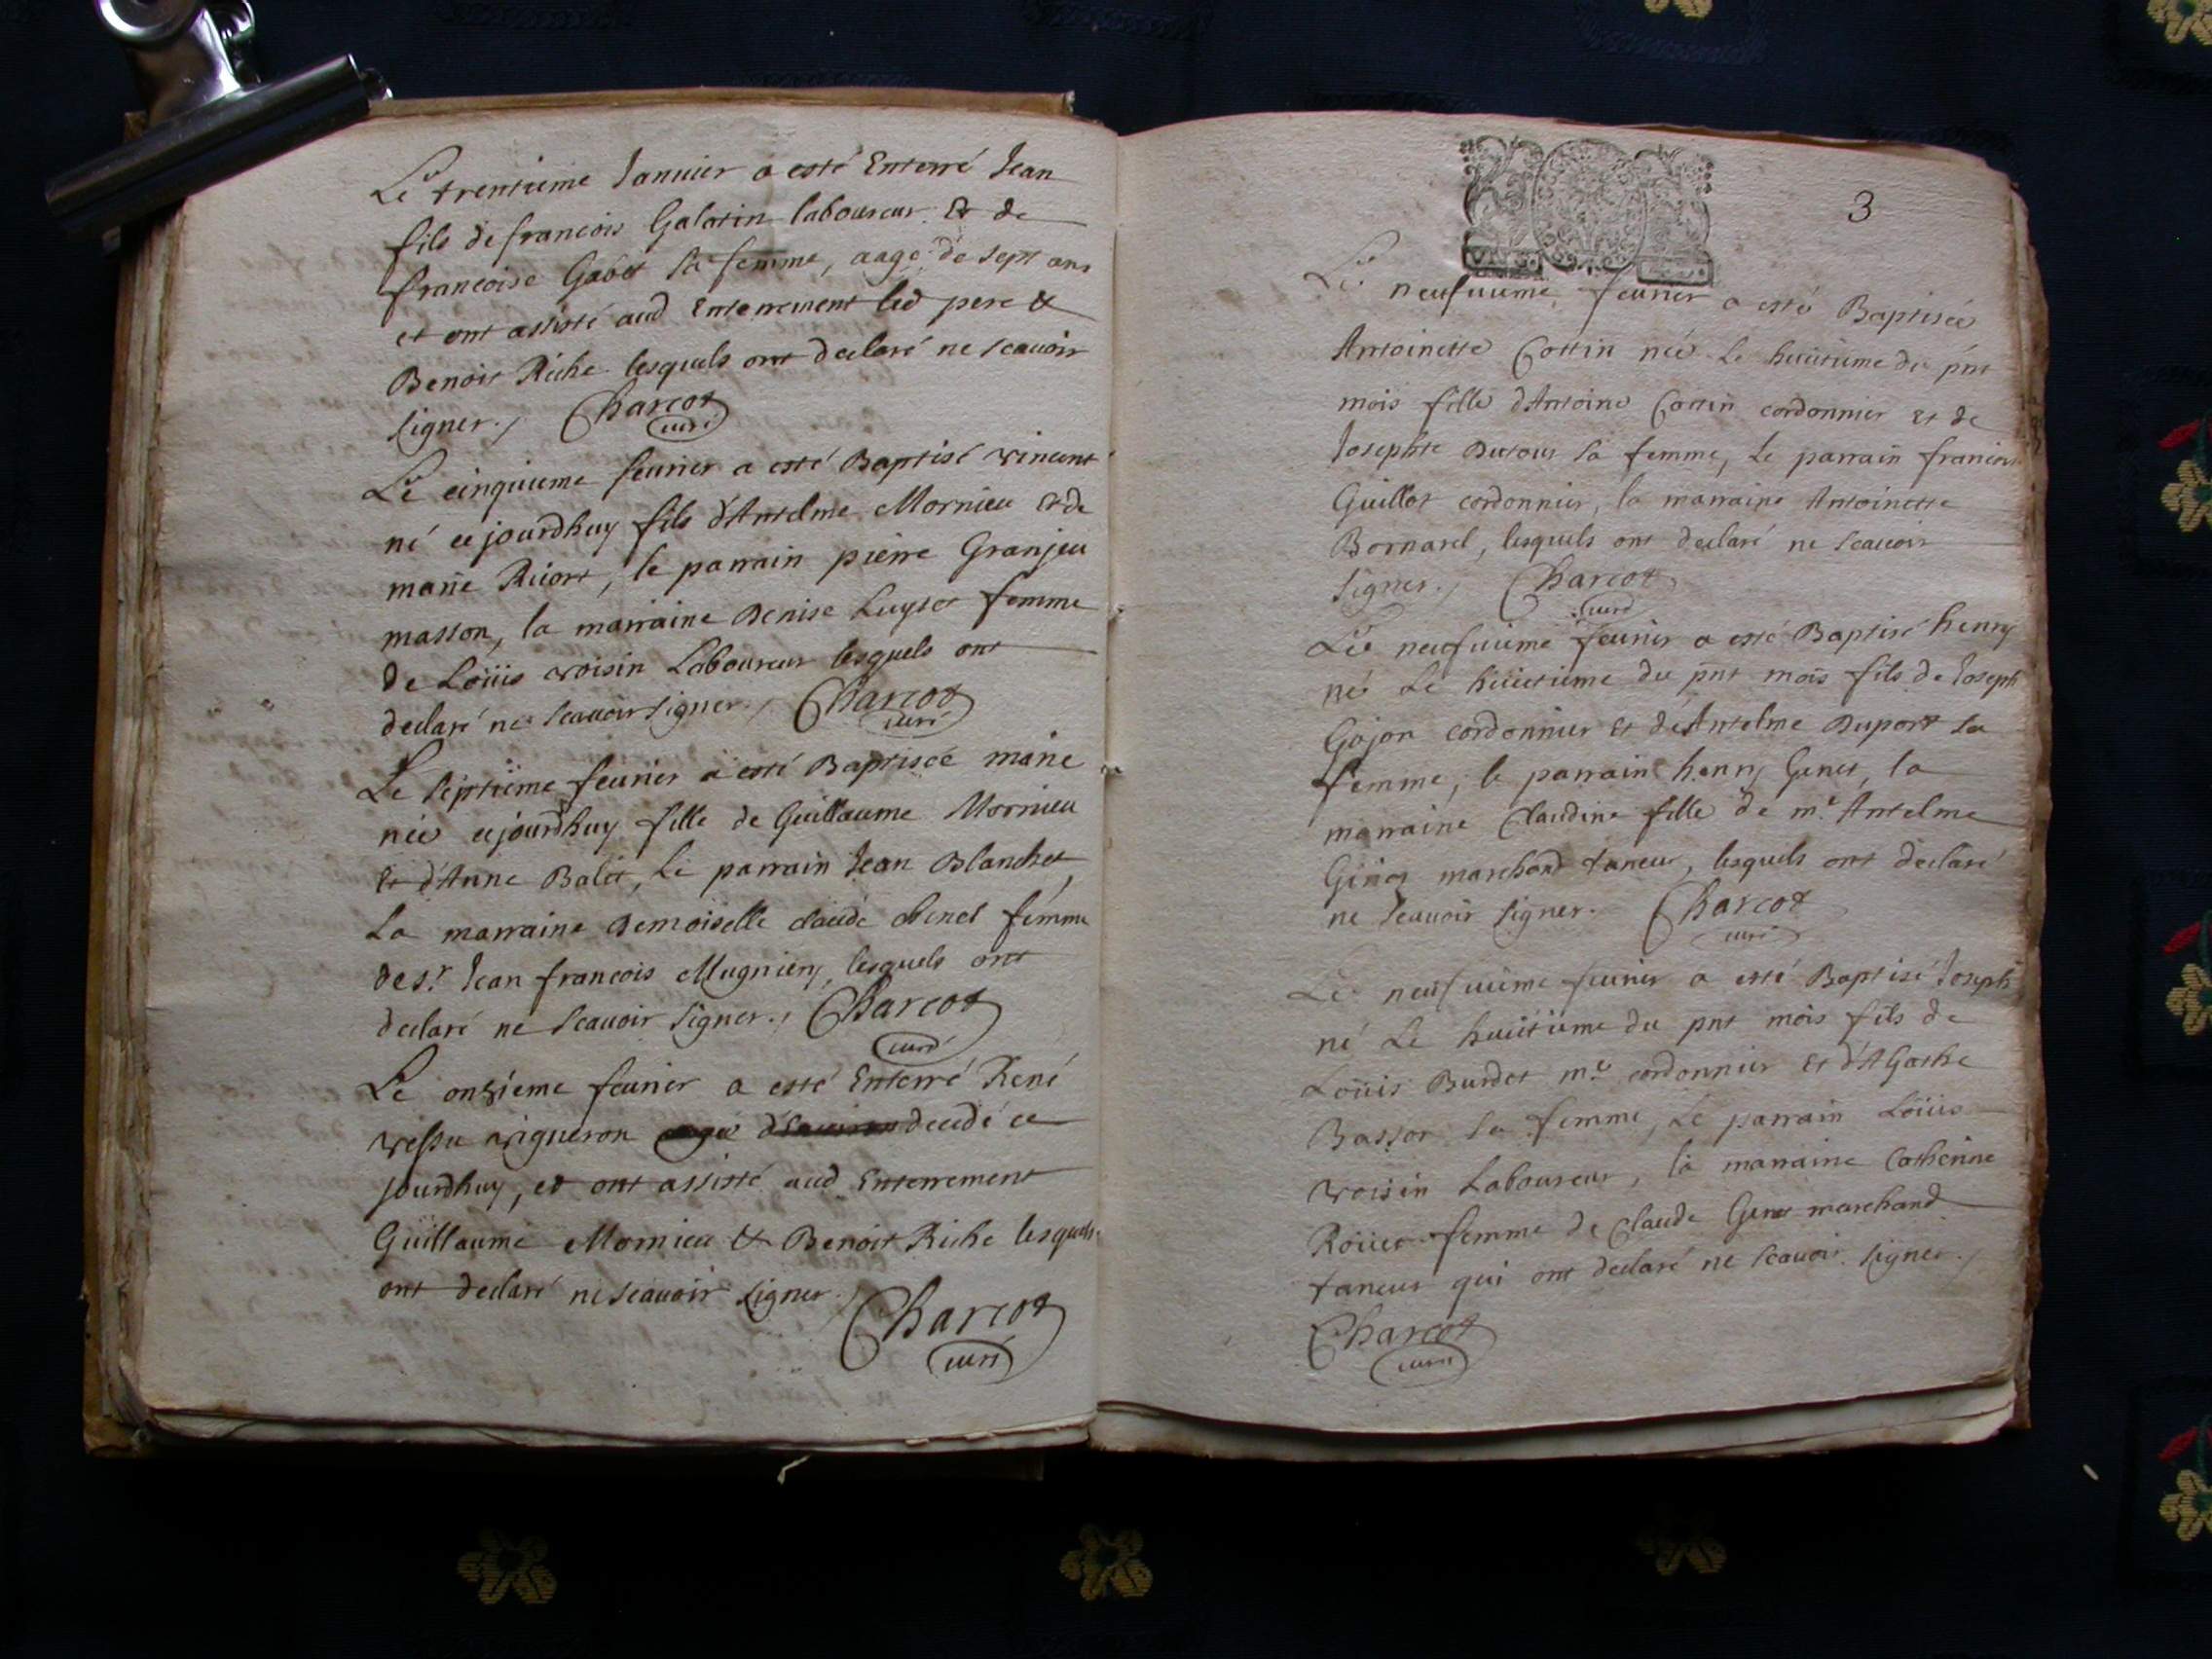 Le trentieme Januier a esté Enterré Jean
fils de francois Galatin laboureur Et de
francoise Gabet sa femme, aagé de sept ans
et ont assisté aud Enterrement led pere &
Benoit Riche lesquels ont declaré ne scauoir
signer./ Charcot
curé
Le cinquieme feurier a esté Baptisé vincent
né ce jourdhuy fils d'Antelme Mornieu et de
marie Riort, le parrain pierre Granjeu
masson, la marraine Denise Luyset femme
de Loüis voisin Laboureur lesquels ont
declaré ne scauoir signer./ Charcot
curé
Le septieme feurier a esté Baptisée marie
née ce jourdhuy fille de Guillaume Mornieu
Et d'Anne Balet, Le parrain Jean Blanchet,
La marraine Demoiselle claude femme
de sr Jean francois Mugniery, lesquels ont
declaré ne scauoir signer./ Charcot
curé
Le onzieme feurier a esté Enterré René
vigneron decedé ce
jourdhuy, et ont assisté aud Enterrement
Guillaume Mornieu & Benoit Riche lesquels
ont declaré ne scauoir signer./
Charcot
curé
3
Le neufuieme feurier a esté Baptisée
Antoinette Cottin née Le huictieme du pnt
mois fille d'Antoine Cottin cordonnier et de
Josephte Dutour sa femme, Le parrain francois
Guillot cordonnier, la marraine Antoinette
Bornarel, lesquels ont declaré ne scauoir
signer./ Charcot
curé
Le neufuieme feurier a esté Baptisé henry
né Le huictieme du pnt mois fils de Joseph
Gojon cordonnier et d'Antelme Duport sa
femme, le parrain henry Genet, la
marraine Claudine fille de mr Antelme
marchand taneur, lesquels ont declaré
ne scauoir signer. Charcot
curé
Le neufuieme feurier a esté Baptisé Joseph
né Le huictieme du pnt mois fils de
Loüis Burdet me cordonnier et d'Agathe
Bassot sa femme, Le parrain Loüis
voisin Laboureur, la marraine Catherine
Roüier femme de Claude Genet marchand
taneur qui ont declaré ne scauoir signer./
Charcot
curé